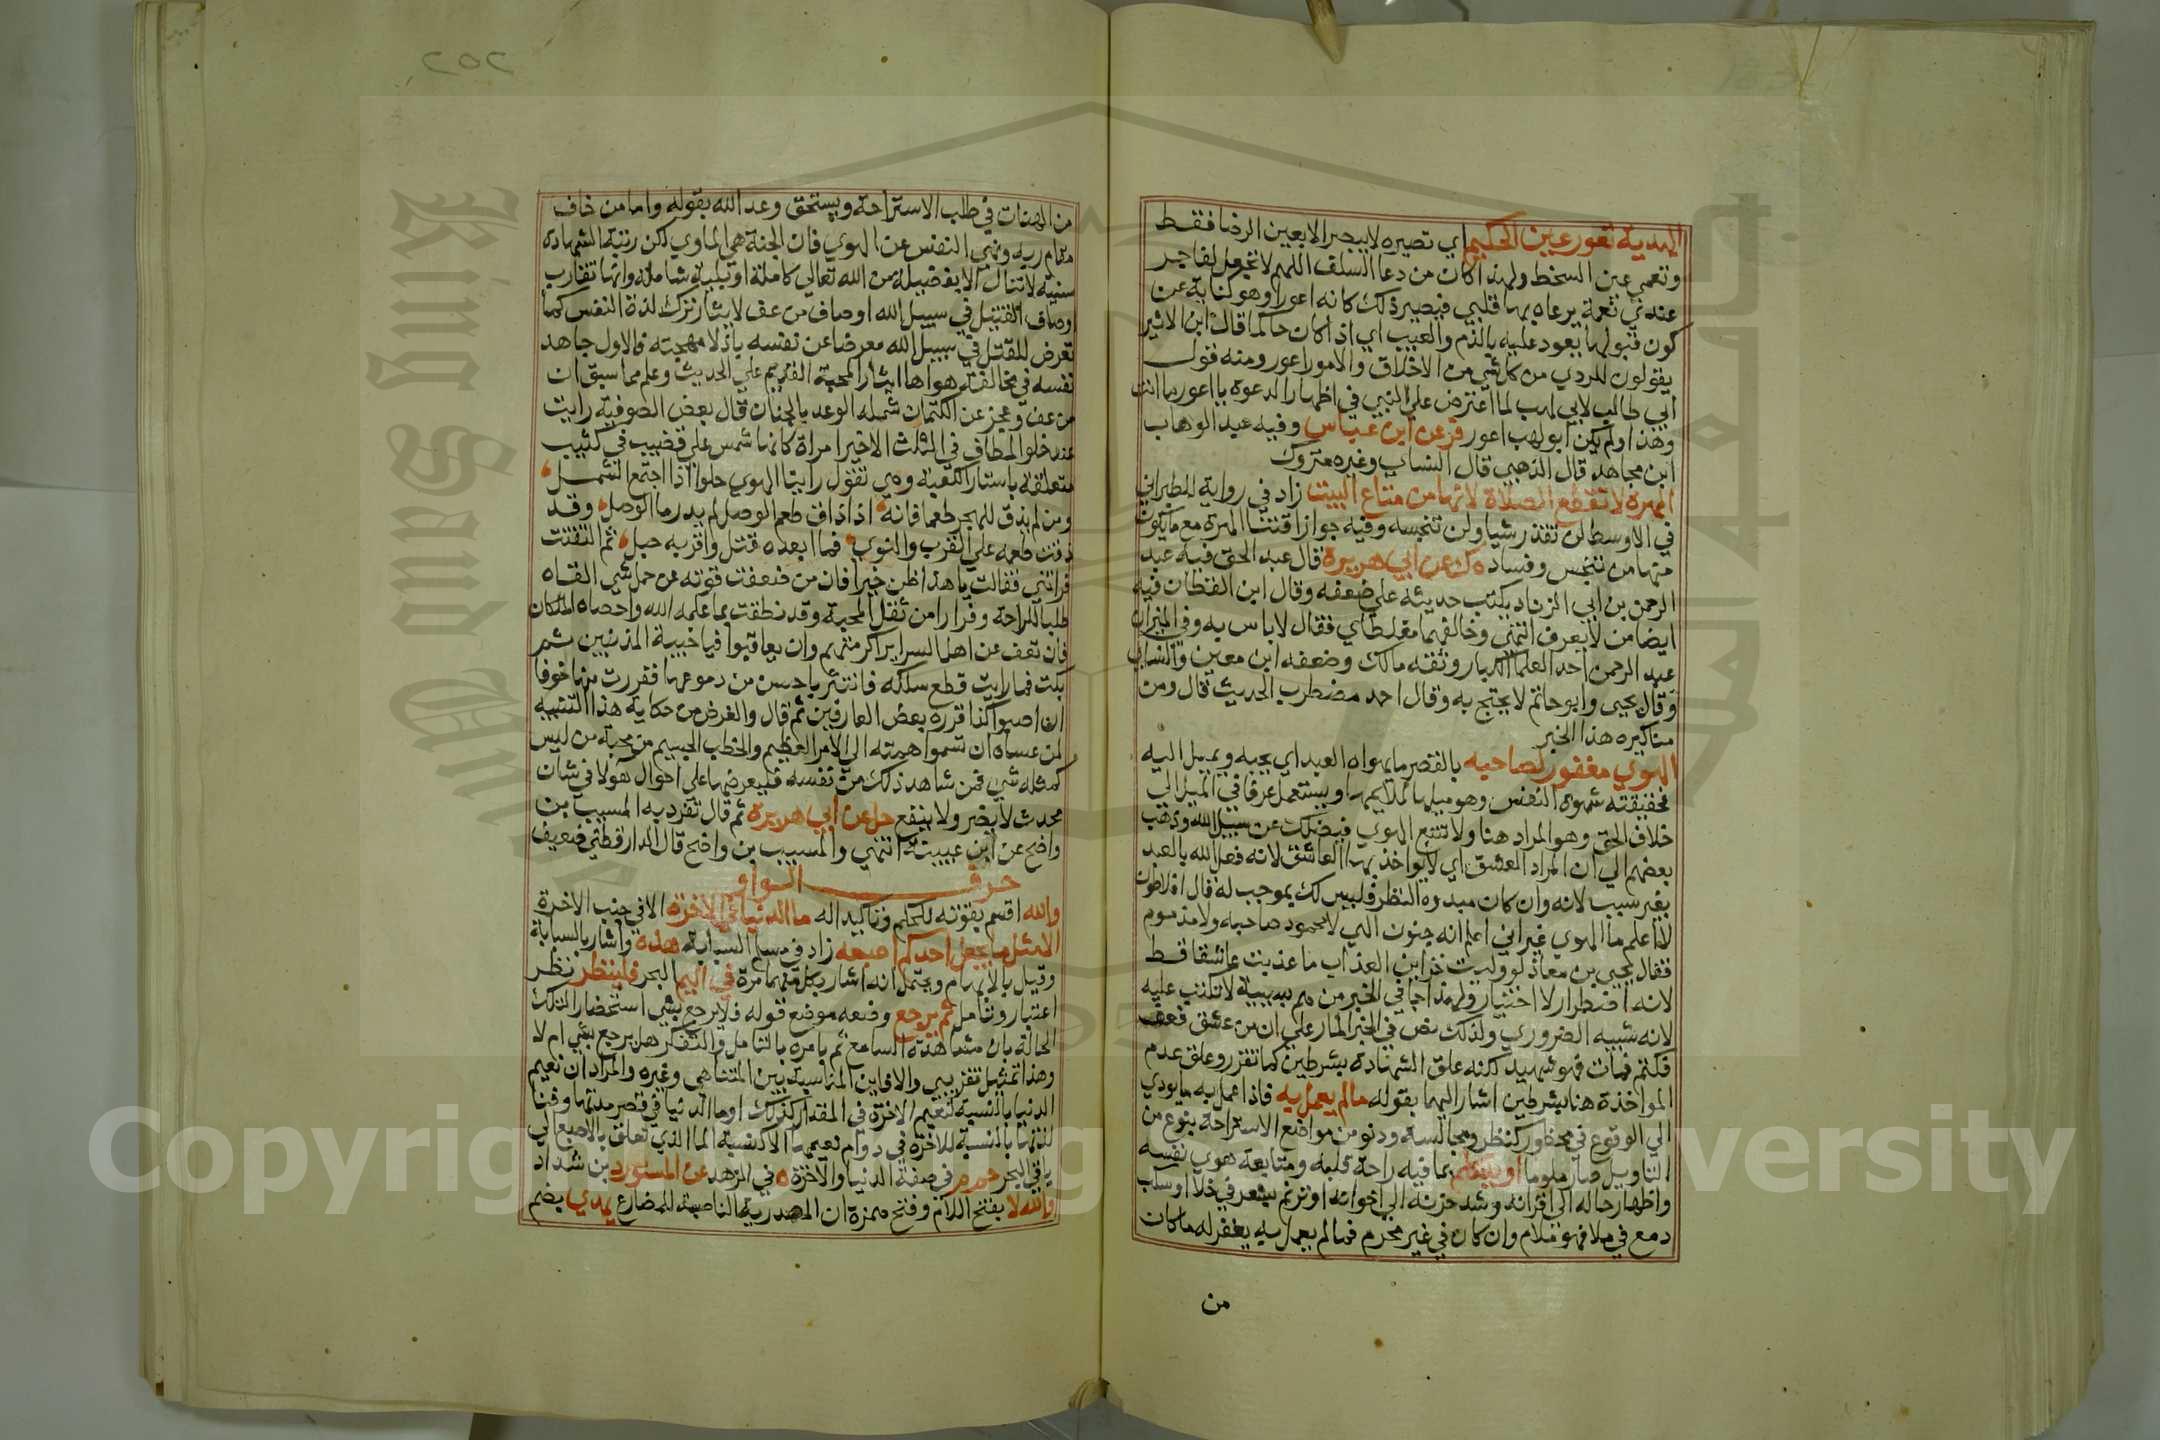 الهدية تعور عين الحكيم اي تصيره لا يبصر الا بعين الرضا فقط
وتعمي عين السخط ولهذا كان من دعا السلف اللهم لا تجعل لفاجر
عندي نعمة يرعاه بها قلبي فيصير ذلك كانه اعور او هو كناية عن
كون قبولها يعود عليه بالذم والعيب اي اذا كان حاكما قال ابن الاثير
يقولون للردي من كل شي من الاخلاق والامور اعور ومنه قول
ابي طالب لابي لهب لما اعترض علي النبي في اظهار الدعوة يا اعور ما انت
وهذا ولم يكن ابو لهب اعور فر عن ابن عباس وفيه عبد الوهاب
ابن مجاهد قال الذهبي قال النساي وغيره متروك
الهرة لا تقطع الصلاة لانها من متاع البيت زاد في رواية للطبراني
في الاوسط لن تقذر شيا ولن تنجسه وفيه جواز اقتنا الهرة مع ما يكون
منها من تنجس وفساد ه ك عن ابي هريرة قال عبد الحق فيه عبد
الرحمن بن ابي الزناد يكتب حديثه علي ضعفه وقال ابن القطان فيه
ايضا من لا يعرف انتهي وخالفهما مغلطاي فقال لا باس به وفي الميزان
عبد الرحمن احد العلما الكبار وثقه مالك وضعفه ابن معين والنساي
وقال يحيي وابو حاتم لا يحتج به وقال احمد مضطرب الحديث قال ومن
مناكيره هذا الخبر
الهوي مغفور لصاحبه بالقصر ما يهواه العبد اي يحبه ويميل اليه
فحقيقته شهوة النفس وهو ميلها لملايمها ويستعمل عرفا في الميل الي
خلاف الحق وهو المراد هنا ولا تتبع الهوي فيضلك عن سبيل الله وذهب
بعضهم الي ان المراد العشق اي لا يواخذ بها العاشق لانه فعل الله بالعبد
بغير سبب لانه وان كان مبدوه النظر فليس لك بموجب له قال افلاطون
لا اعلم ما الهوي غير اني اعلم انه جنون الهي لا محمود صاحبه ولا مذموم
فقال يحيي بن معاذ لو وليت خزاين العذاب ما عذبت عاشقا قط
لانه اضطرار لا اختيار ولهذا جا في الخبر من هم بسيئة لا تكتب عليه
لانه شبيه الضروري ولذلك نص في الخبر المار علي ان من عشق فعف
فكتم فمات فهو شهيد لكنه علق الشهادة بشرطين كما تقرر وعلق عدم
المواخذة هنا بشرطين اشار اليهما بقوله ما لم يعمل به فاذا عمل به ما يودي
الي الوقوع في محظور كنظر ومجالسة ودنو من مواضع الاستراحة بنوع من
التاويل صار ملوما او يتكلم بما فيه راحة قلبه ومتابعة هوي نفسه
واظهار حاله الي اقرانه وشد حزنه الي اخوانه او ترنم بشعر في خلا او سكب
دمع في ملا فهو ملام وان كان في غير محرم فما لم يعمل به يغفر له ما كان
من
من الهنات في طلب الاستراحة ويستحق وعد الله بقوله واما من خاف
مقام ربه ونهي النفس عن الهوي فان الجنة هي الماوي لكن رتبة الشهادة
سنية لا تنال الا بفضيلة من الله تعالي كاملة او بلية شاملة وانها تقارب
اوصاف القتيل في سبيل الله اوصاف من عف لايثار ترك لذة النفس كما
تعرض للقتل في سبيل الله معرضا عن نفسه باذلا مهجته فالاول جاهد
نفسه في مخالفة هواها ايثار المحبة القديم علي الحديث وعلم مما سبق ان
من عف وعجز عن الكتمان شمله الوعد بالجنان قال بعض الصوفية رايت
عند خلو المطاف في الثلث الاخير امراة كانها شمس علي قضيب في كثيب
متعلقة باستار الكعبة وهي تقول رايت الهوي حلوا اذا اجتمع الشمل
ومن لم يذق للهجر طعما فانه اذا ذاق طعم الوصل لم يدر ما الوصل وقد
ذقت طعمه علي القرب والنوي فما ابعده قتل واقربه حبل ثم التفتت
فراتني فقالت يا هذا ظن خيرا فان من ضعفت قوته عن حمل شي القاه
طلبا للراحة وفرارا من ثقل المحبة وقد نطقت بما علمه الله واحصاه الملكان
فان تعف عن اهل السراير اكن منهم وان يعاقبوا فيا خيبة المذنبين ثم
بكت فما رايت قطع سلكه فانتثر باحسن من دموعها ففررت منها خوفا
ان اصبوا كذا قرره بعض العارفين ثم قال والغرض من حكاية هذا التنبيه
لمن عساه ان تسموا همته الي الامر العظيم والخطب الجسيم من محبة من ليس
كمثله شي فمن شاهد ذلك من نفسه فليعرضها علي احوال هولا في شان
محدث لا يضر ولا ينفع حل عن ابي هريرة ثم قال تفرد به المسيب بن
واضح عن ابن عيينة انتهي والمسيب بن واضح قال الدارقطني ضعيف
حرف الواو
والله اقسم بقوته للحكم وتاكيدا له ما الدنيا في الاخرة الا في جنب الاخرة
الا مثل ما يجعل احدكم اصبعه زاد في مسلم السبابة هذه واشار بالسبابة
وقيل بالابهام ويحتمل انه اشار بكل منهما مرة في اليم البحر فلينظر نظر
اعتبار وتامل ثم يرجع وضعه موضع قوله فلا يرجع بشي استحضار التلك
الحالة بان مشاهدة السامع ثم يامره بالتامل والتفكر هل يرجع بشي ام لا
وهذا تمثيل تقريبي والا فاين المناسبة بين المتناهي وغيره والمراد ان نعيم
الدنيا بالنسبة لنعيم الاخرة في المقدار كذلك او ما الدنيا في قصر مدتها وفنا
لذتها بالنسبة للاخرة في دوام نعيمها الا كنسبة الما الذي تعلق بالاصبع الي
باقي البحر حم م في صفة الدنيا والاخرة ه في الزهد عن المستورد بن شداد
والله لا بفتح اللام وفتح همزة ان المصدرية الناصبة للمضارع يهدي بضم